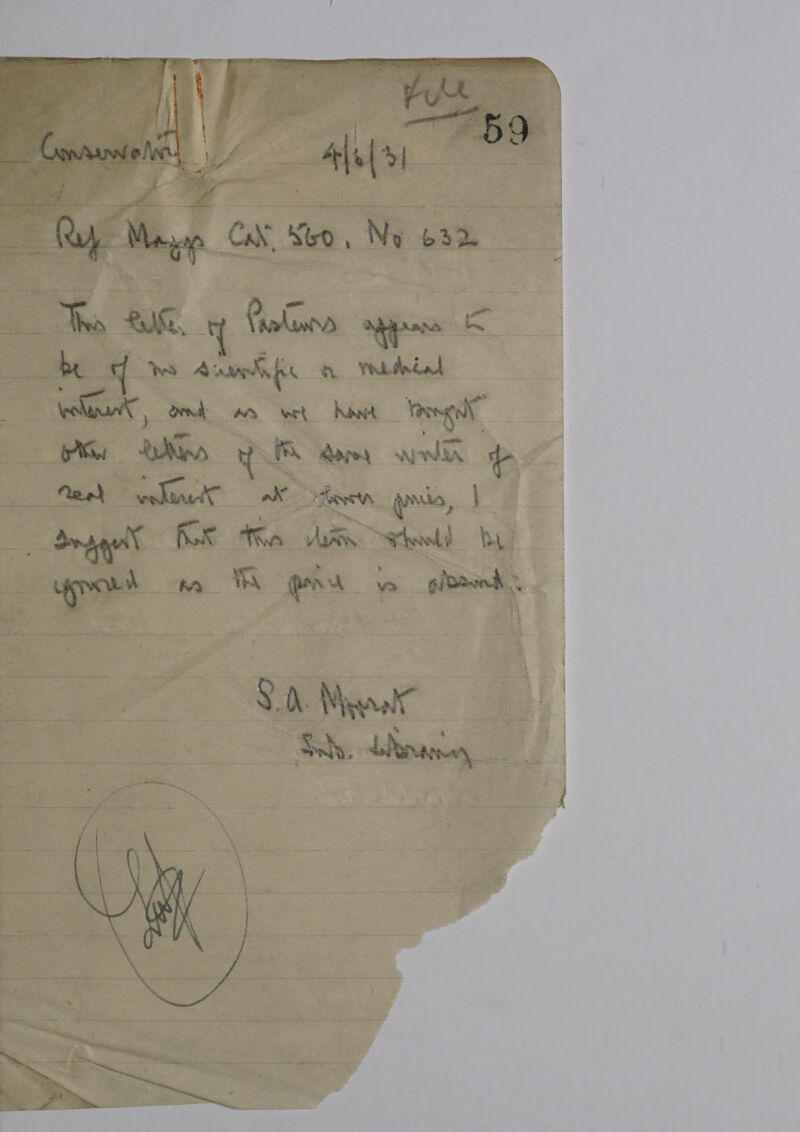 File
59
Conservator
4/6/31
Ref Maggs Cat. 560, No 632
This letter of Pasteurs appears to
be of no scientific or medical
interest, and as we have bought
other letters of the same writer of
real interest at lower prices, I
suggest that this item should be
ignored as the price is absurd.
S. A. Moorat
Sub. Librarian